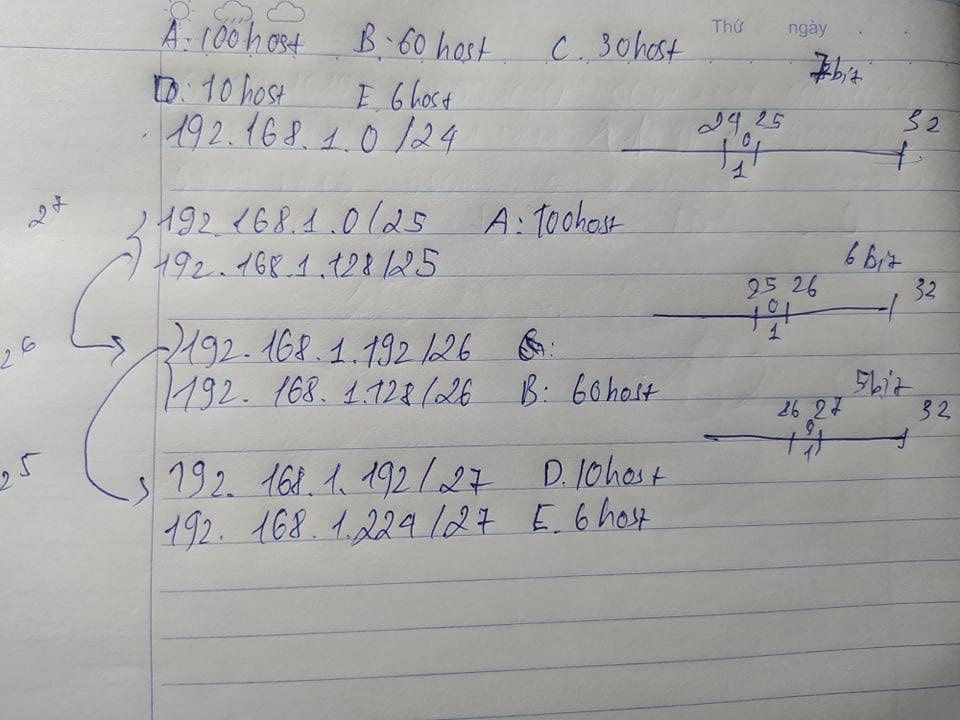 Thứ ngày
A: 100 host B: 60 host C. 30 host
7 bit
D: 10 host E. 6 host
192.168.1.0 /24
24 25 32
0
1
2^7
192.168.1.0/25 A: 100 host
192.168.1.128/25
6 bit
25 26 32
0
1
2^6
192.168.1.192/26
192.168.1.128/26 B: 60 host
5 bit
26 27 32
0
1
2^5
192.168.1.192/27 D. 10 host
192.168.1.224/27 E. 6 host